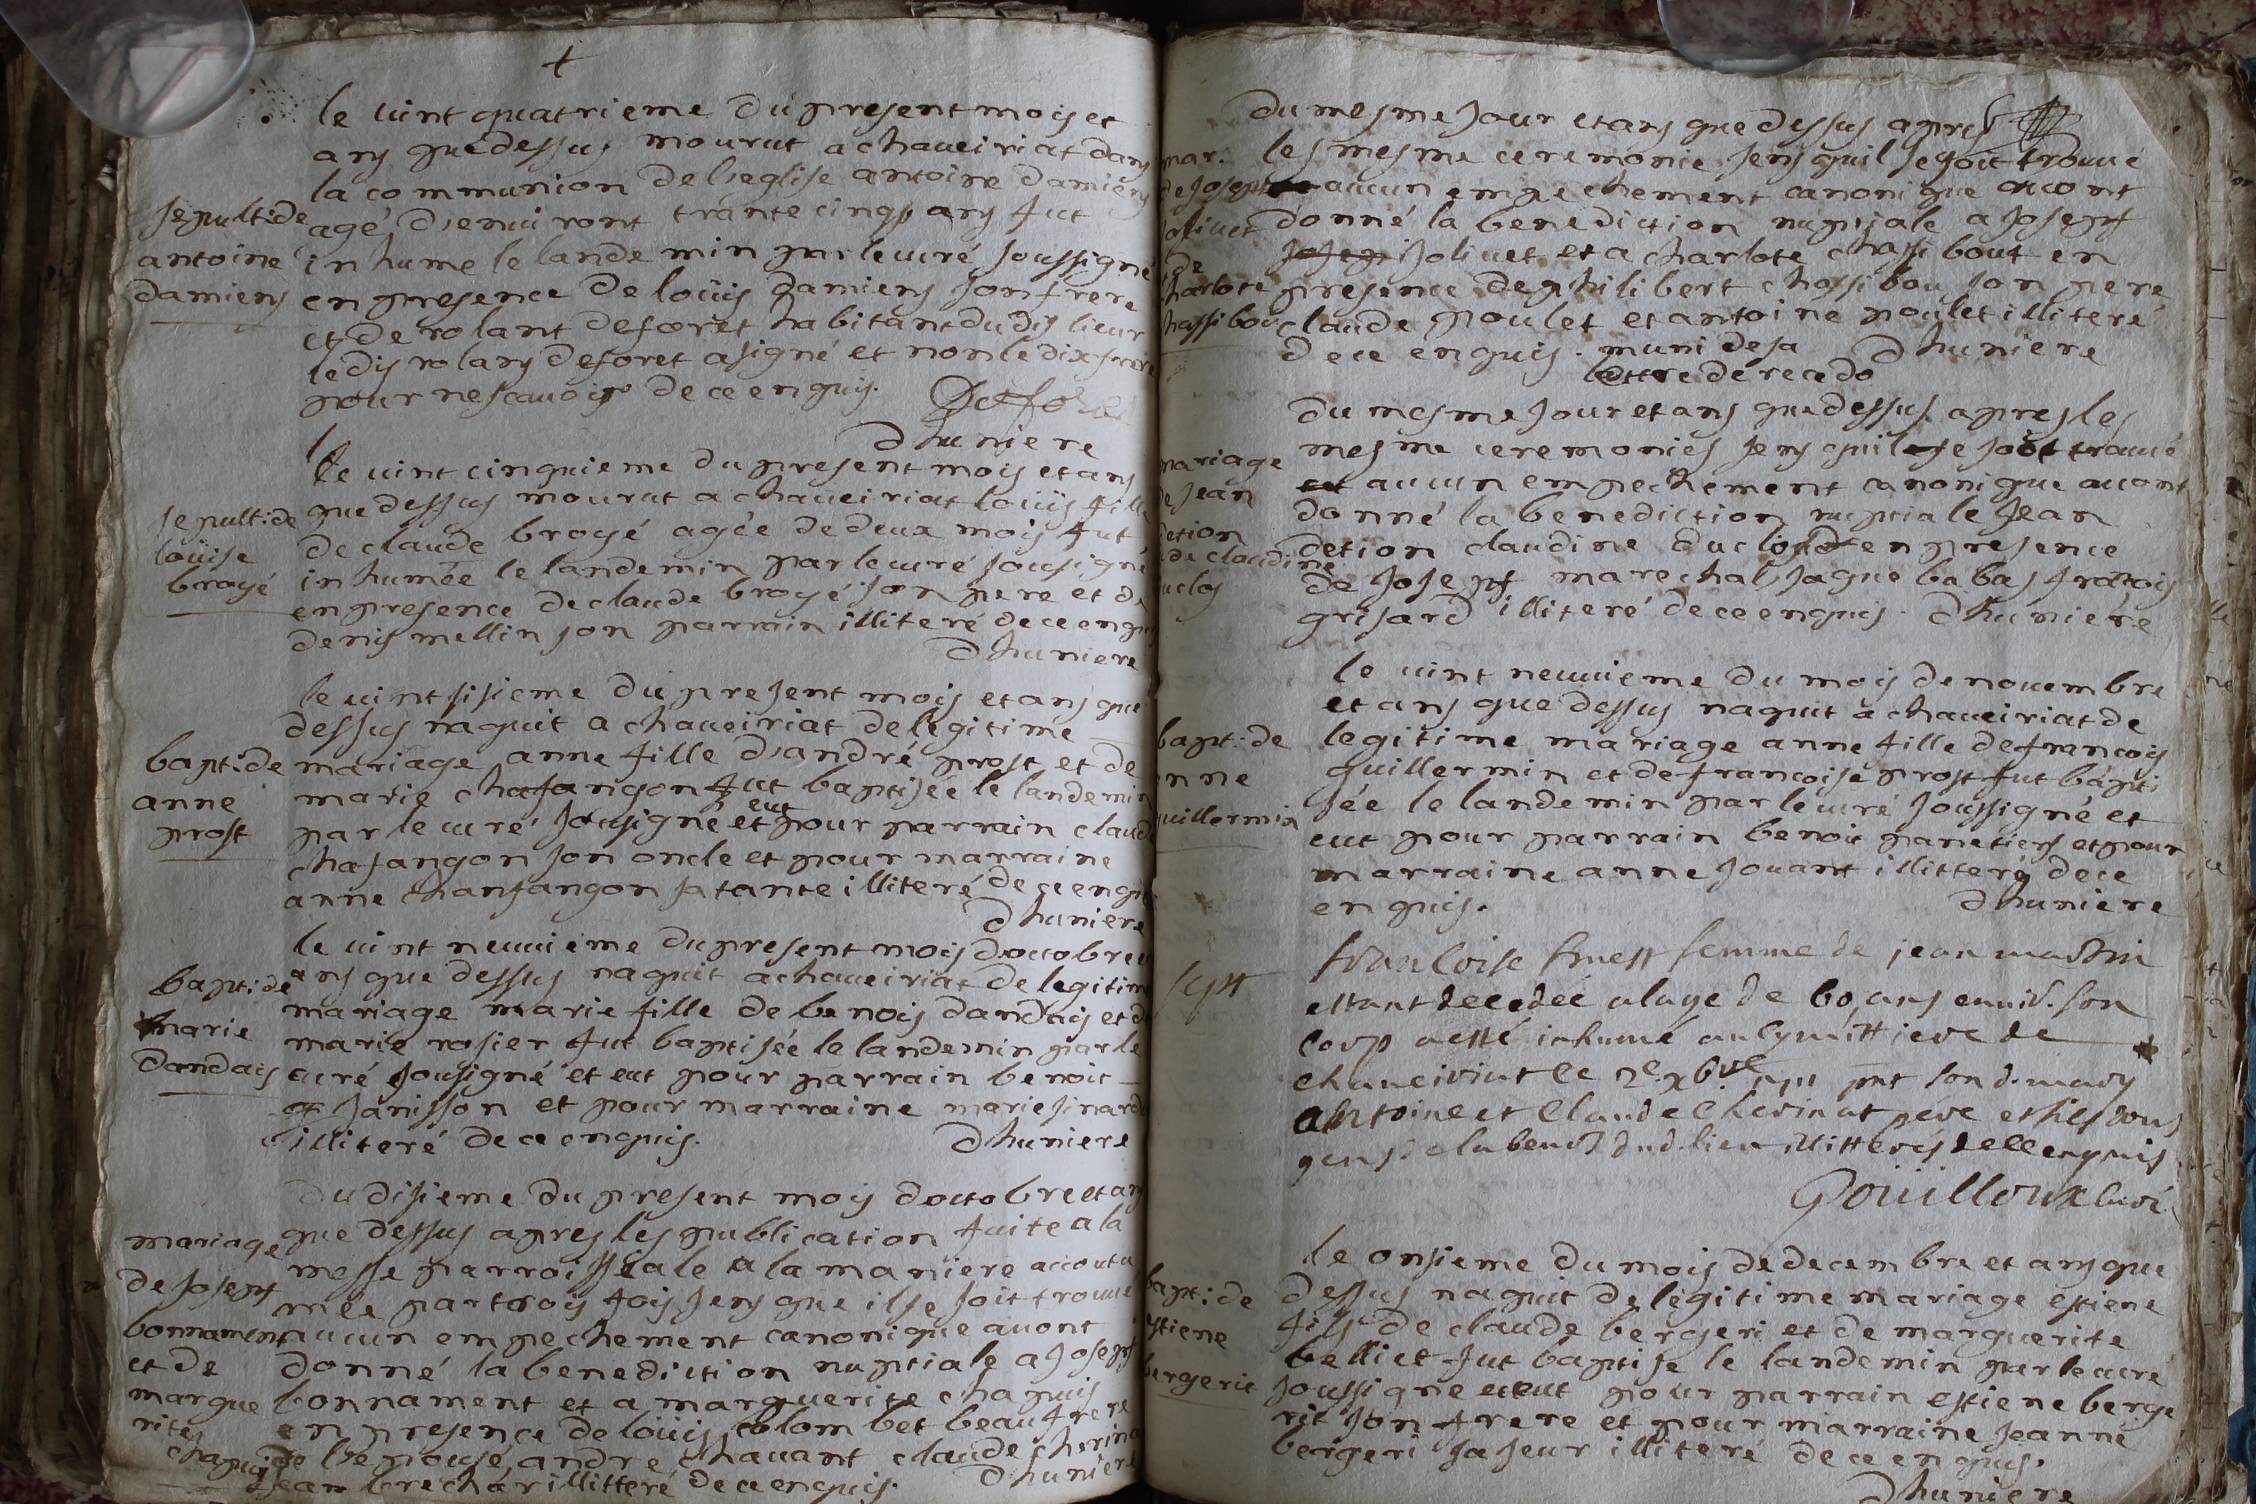 +
le vint quatrieme du present mois et
ans que dessus mourut a chaveiriat dans
la communion de l'eglise antoine damiens
sepult: de
antoine
damiens
agé d'environt trante cinqp ans fut
inhume le landemin par le curé soussigné
en presence de loüis damiens son frere
et de rolant deforet habitant du dis lieur
le dis rolans deforet a signé et non le dix frere
pour ne scavoir de ce enquis.
dhuniere
le vint cinquieme du present mois et ans
que dessus mourut a chaveiriat loüis fille
sepult: de
loüise
broyé
de claude broyé agée de deux mois fut
inhumée le landemin par le curé sousigné
en presence de claude broyé son pere et de
denis mellin son parrain illiteré de ce enquis
dhuniere
le vint sisieme du present mois et ans que
dessus naquit a chaveiriat de legitime
bapt: de
anne
prost
mariage anne fille d'andré prost et de
marie chafangon fut baptisée le landemin
par le curé sousigné et eut pour parrain claude
chafangon son oncle et pour marraine
anne chanfangon sa tante illiteré de ce enquis
dhuniere
le vint neuvieme du present mois doctobre et
ans que dessus naquit a chaveiriat de legitime
bapt: de
marie
dandais
mariage marie fille de benois dandais et de
marie rosier fut baptisée le landemin par le
curé sousigné et eut pour parrain benoit
janisson et pour marraine marie sinarde
illiteré de ce enquis. dhuniere
du disieme du present mois doctobre et ans
que dessus apres les publication faite a la
mariage
de josept
bonnament
et de
margue
rite
chapuis
messe parroissiale a la maniere accoutu
mée par trois fois sens que il se soit trouve
aucun empechement canonique avont
donné la benediction nuptiale a josept
bonnament et a marguerite chapuis
en presence de loüis colombet beaufrere
de l'epousé andre chavant claude cherina
jean brechar illitteré de ce enquis. dhuniere
du mesme jour et ans que dessus apres
mar.
de josept
jolivet
et de
charlote
chassibou
les mesme ceremonie sens quil se soit trouvé
aucun empechement canonique avont
donné la benediction nuptiale a josept
jolivet et a charlote chassibout en
presence de philibert chassibou son pere
claude poulet et antoine poulet illiteré
de ce enquis. muni de sa dhuniere
lettre de recedo
du mesme jour et ans que dessus apres les
mesme ceremonies sens quil se soit trouvé
mariage
de jean
detion
et de claudine
duclos
aucun empechement canonique avont
donné la benediction nuptiale jean
detion claudine duclos en presence
de josept marechal jaque babas francois
grisard illiteré de ce enquis. dhuniere
le vint neuvieme du mois de novembre
et ans que dessus naquit a chaveiriat de
bapt: de
anne
guillermin
legitime mariage anne fille de francois
guillermin et de francoise prost fut bapti
sée le landemin par le curé soussigné et
eut pour parrain benoit panetiers et pour
marraine anne jouant illitteré de ce
enquis. dhuniere
sept
francoise femme de jean martin
estant decedée a l'age de 60 ans envir. son
corp a esté inhumé au cymittiere de
chaveiriat le 2e xbre
antoine et claude chevinat pere et fils
dud. lieu illitteres de ce enquis
Poüilloux curé
le onsieme du mois de decembre et ans que
bapt: de
estiene
bergerit
dessus naquit de legitime mariage estiene
fils de claude bergeri et de marguerite
belliet fut baptise le landemin par le curé
soussigne et eut pour parrain estiene berge
rit son frere et pour marraine jeanne
bergeri sa seur illiteré de ce enquis.
dhuniere